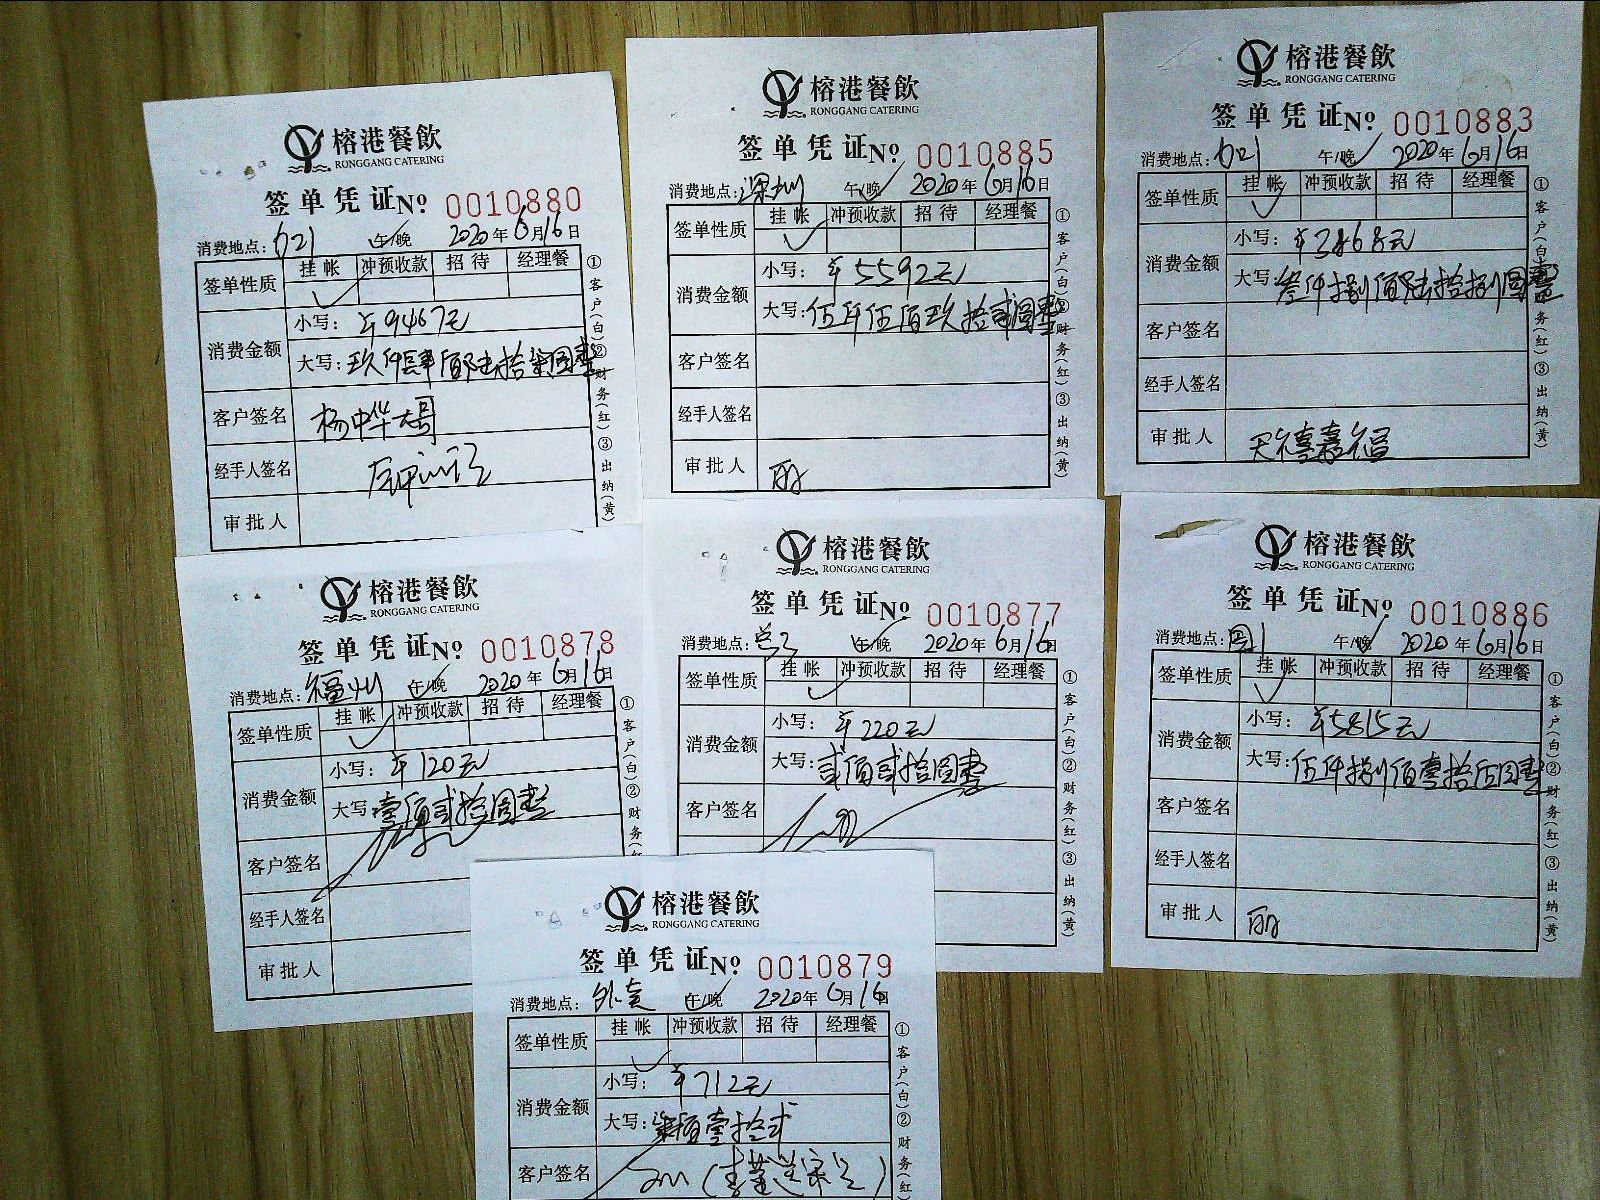 榕港餐飲
RONGGANG CATERING
签单凭证№ 0010880
消费地点： 午/晚 2020年6月16日
签单性质 挂帐 冲预收款 招待 经理餐
消费金额 小写：¥9467元
大写：玖仟肆佰陆拾柒圆整
客户签名 杨中华大哥
经手人签名
审批人
①客户(白)②财务(红)③出纳(黄)
榕港餐飲
RONGGANG CATERING
签单凭证№ 0010885
消费地点：深圳 午/晚 2020年6月16日
签单性质 挂帐 冲预收款 招待 经理餐
消费金额 小写：¥5592元
大写：伍仟伍佰玖拾贰圆整
客户签名
经手人签名
审批人 丽
①客户(白)②财务(红)③出纳(黄)
榕港餐飲
RONGGANG CATERING
签单凭证№ 0010883
消费地点： 午/晚 2020年6月16日
签单性质 挂帐 冲预收款 招待 经理餐
消费金额 小写：¥3868元
大写：叁仟捌佰陆拾捌圆整
客户签名
经手人签名
审批人 天禧嘉福
①客户(白)②财务(红)③出纳(黄)
榕港餐飲
RONGGANG CATERING
签单凭证№ 0010878
消费地点：福州 午/晚 2020年6月16日
签单性质 挂帐 冲预收款 招待 经理餐
消费金额 小写：¥120元
大写：壹佰贰拾圆整
客户签名
经手人签名
审批人
①客户(白)②财务(红
榕港餐飲
RONGGANG CATERING
签单凭证№ 0010877
消费地点： 午/晚 2020年6月16日
签单性质 挂帐 冲预收款 招待 经理餐
消费金额 小写：¥220元
大写：贰佰贰拾圆整
客户签名
①客户(白)②财务(红)③出纳(黄)
榕港餐飲
RONGGANG CATERING
签单凭证№ 0010886
消费地点： 午/晚 2020年6月16日
签单性质 挂帐 冲预收款 招待 经理餐
消费金额 小写：¥5815元
大写：伍仟捌佰壹拾伍圆整
客户签名
经手人签名
审批人 丽
①客户(白)②财务(红)③出纳(黄)
榕港餐飲
RONGGANG CATERING
签单凭证№ 0010879
消费地点：外卖 午/晚 2020年6月16日
签单性质 挂帐 冲预收款 招待 经理餐
消费金额 小写：¥712元
大写：柒佰壹拾贰
客户签名
①客户(白)②财务(红